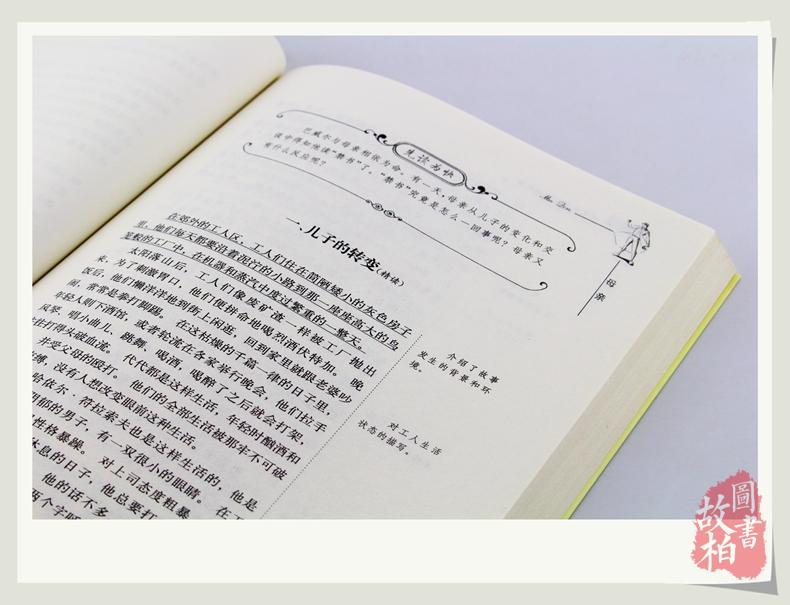 先读为快
巴威尔与母亲相依为命。有一天，母亲从儿子的变化和交
谈中得知他读“禁书”了。“禁书”究竟是怎么一回事呢？母亲又
有什么反应呢？
母亲
一、儿子的转变(精读)
在郊外的工人区，工人们住在简陋矮小的灰色房子
里，他们每天都要沿着泥泞的小路到那一座座高大的鸟
笼般的工厂中，在机器和蒸汽中度过繁重的一整天。
太阳落山后，工人们像废矿渣一样被工厂抛出
来，为了刺激胃口，他们便拼命地喝烈酒伏特加。晚
饭后，他们懒洋洋地到街上闲逛，回到家里就跟老婆吵
闹，常常是拳打脚踢。在这枯燥的千篇一律的日子里，
年轻人则下酒馆，或者轮流在各家举行晚会，他们拉手
风琴，唱小曲儿，跳舞，喝酒，喝醉了之后就会打架，
往往打得头破血流。
并受父母的殴打。代代都是这样生活，年轻时酗酒和
搏，没有人想改变眼前这种生活。他们的全部生活被那牢不可破
哈依尔·符拉索夫也是这样生活的，他是
阴郁的男子，有一双很小的眼睛。
性格暴躁。对上司态度粗暴
休息的日子，他总要打
他的话不多
两个字
介绍了故事
发生的背景和环
境。
对工人生活
状态的描写。
故柏
圖書